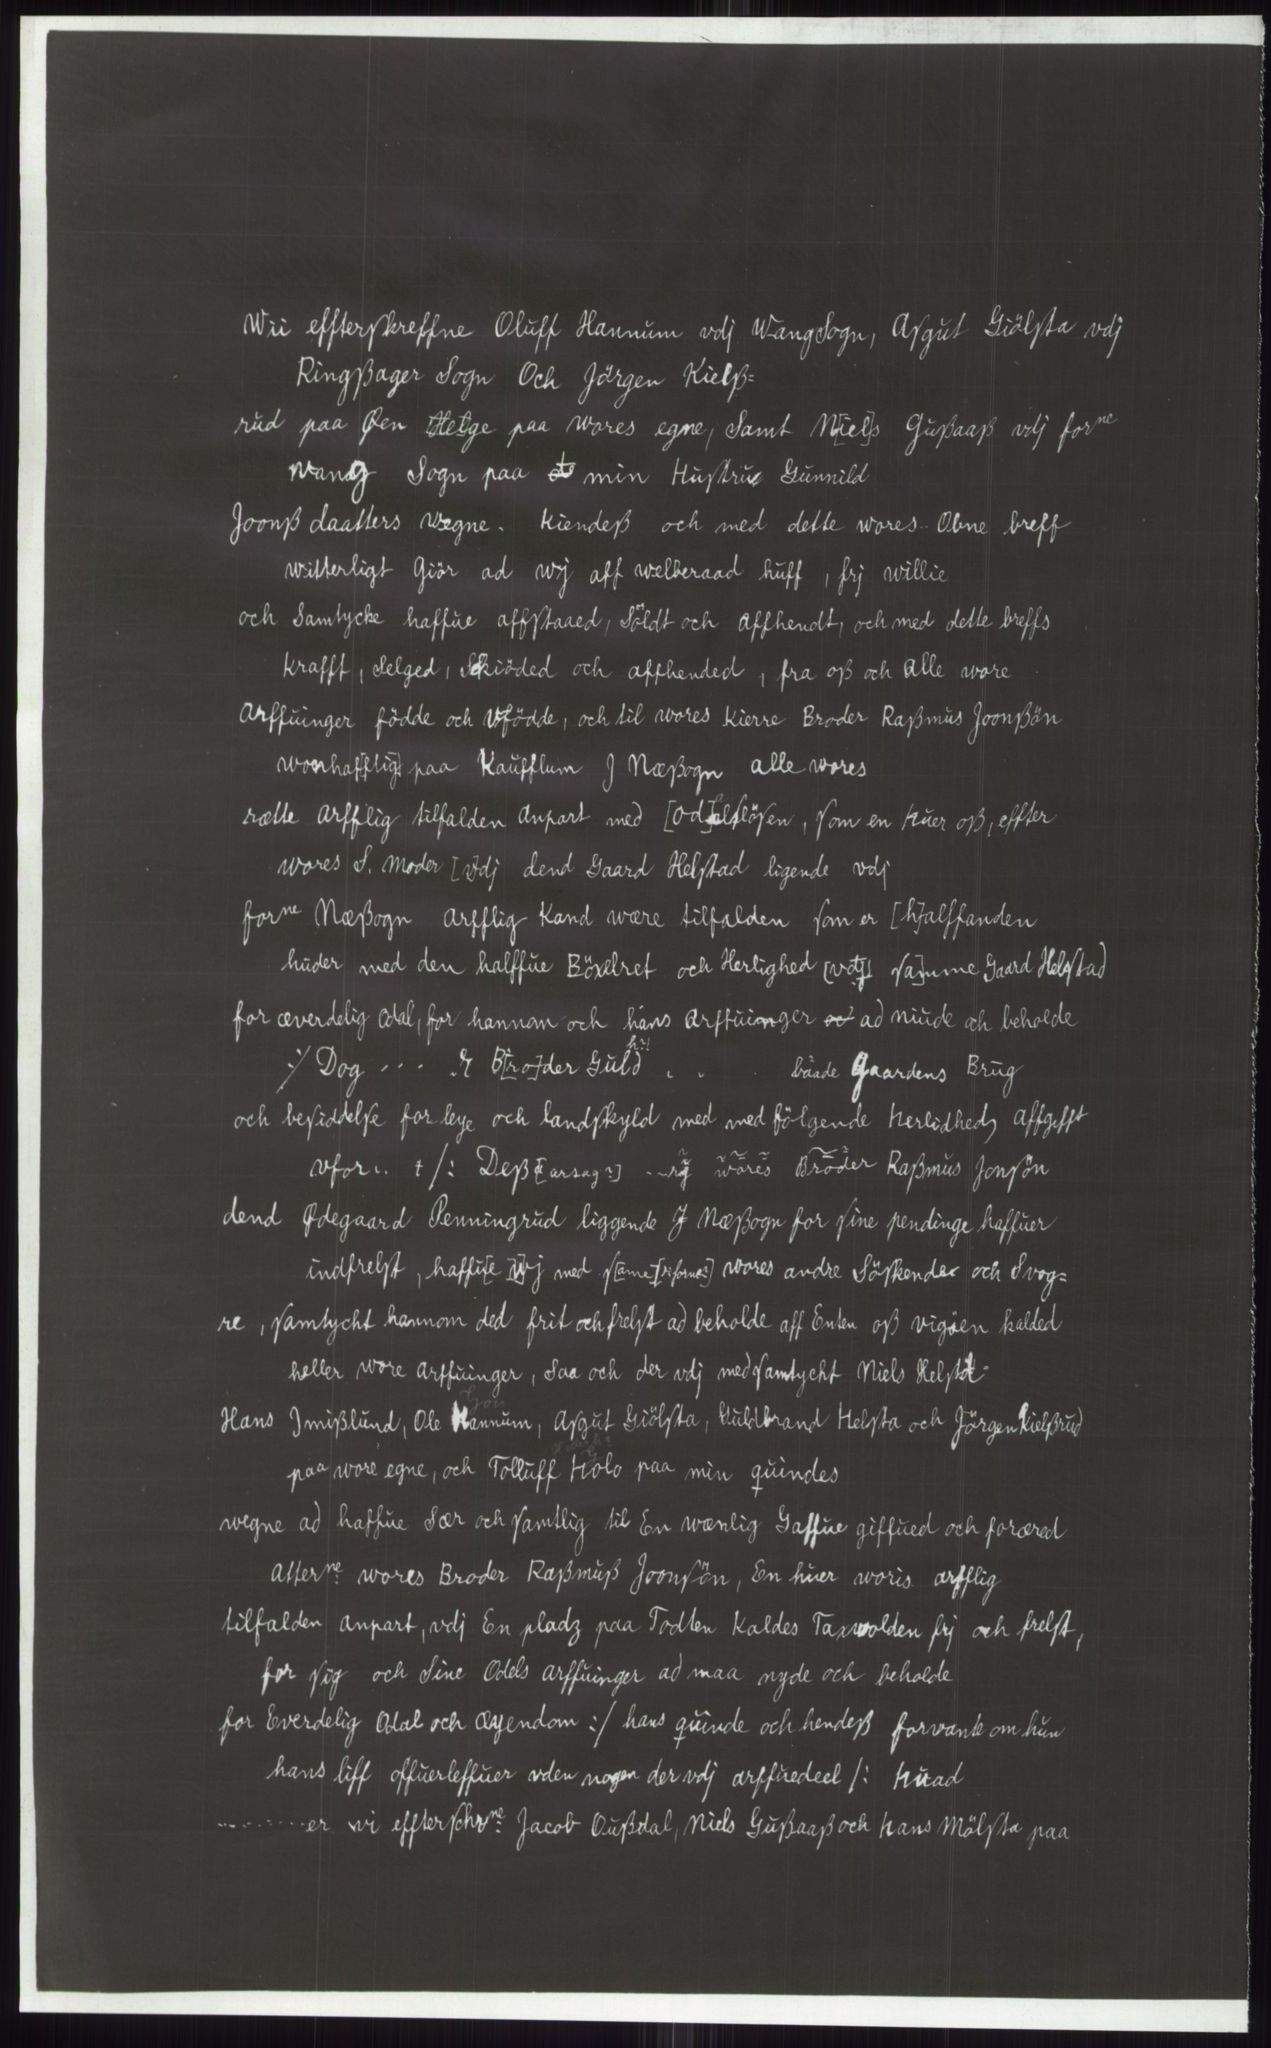 Wii effterskreffne Oluff Hannum vdj Wang Sogn, Asgut Giölsta vdj
Ringßager Sogn Och Jörgen Kielß=
rud paa Øen Helge paa wores egne, Samt N[iel]s Gußaaß vdj forne
wang Sogn paa min Hustrue Gunnild
Joonß daatters wegne. Kiendeß och med dette wores Obne breff
witterligt Giör ad wij aff welberaad huff, frj willie
och Samtycke haffue affstaaed, Söldt och affhendt, och med dette breffs
krafft, Selged, Skiöded och affhended, fra oß och alle wore
arffuinger födde och vfödde, och til wores kierre Broder Raßmus Joonßön
wonhafftig paa Kaufflum J Næßogn alle wores
rætte arfflig tilfalden anpart med [od]elslösen, som en huer oß, effter
wores S. moder [v]dj dend Gaard Helstad ligende vdj
forne Næßogn arfflig kand wære tilfalden som er [h]alffanden
huder med den halffue Böxelret och Herlighed [vdj sa]mme Gaard Helstad
for æverdelig odal, for hannom och hans arffuinger ad niude och beholde
:/ Dog . . . . B[ro]der Guld h?] . . . baade Gaardens Brug
och besiddelse for leye och landskyld med med fölgende herlidheds affgifft
vfor.. + /: Deß[arsag?] ...rj wores Broder Raßmus Jonsön
dend Ødegaard Penningrud liggende J Næßogn for sine pendinge haffuer
indfrelst, haffu[e w]j med s[ame] wores andre Söskende och Svog=
re, samtycht hannom ded frit och frelst ad beholde aff Enten oß vigöen kalded
heller wore arffuinger, Saa och der vdj medsamtycht Niels Helsta
Hans Jmißlund, Ole Hannum, Asgut Giölsta, Guldbrand Helsta och Jörgen Kielßrud
paa wore egne, och Tolluff Holo paa min quindes
wegne ad haffue Sær och samtlig til En wænlig Gaffue giffued och foræred
atterne: wores Broder Raßmuß Joonsön, En huer woris arfflig
tilfalden anpart, vdj En pladz paa Todten Kaldes Taxwolden frj och frelst,
for sig och Sine Odels arffuinger ad maa nyde och beholde
for Everdelig Odal och æyendom :/ hans quinde och hendeß forvante om hun
hans liff offuerleffuer vden nogen der vdj arffuedeel /: huad
........er wi effterschrne: Jacob Oußdal, Niels Gußaaß och Hans Mölsta paa